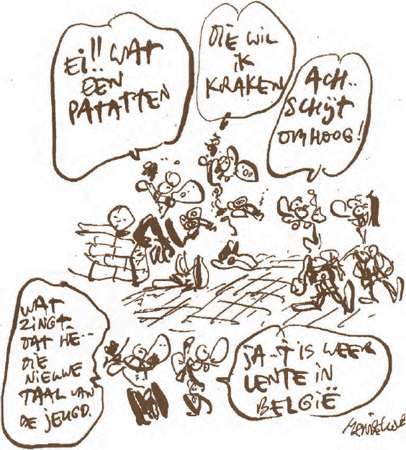 EI!! WAT
EEN
PATATTEN
DIE WIL
IK
KRAKEN
ACH..
SCHIJT
OMHOOG!
WAT
ZINGT
DAT HE..
DIE
NIEUWE
TAAL VAN
DE JEUGD.
JA..T IS WEER
LENTE IN
BELGIË